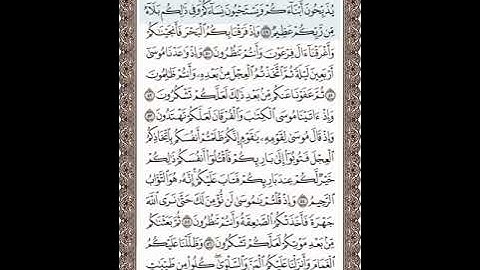 يُذَبِّحُونَ أَبْنَآءَكُمْ وَيَسْتَحْيُونَ نِسَآءَكُمْ وَفِى ذَٰلِكُم بَلَآءٌ
مِّن رَّبِّكُمْ عَظِيمٌ ٤٩ وَإِذْ فَرَقْنَا بِكُمُ ٱلْبَحْرَ فَأَنجَيْنَٰكُمْ
وَأَغْرَقْنَآ ءَالَ فِرْعَوْنَ وَأَنتُمْ تَنظُرُونَ ٥٠ وَإِذْ وَٰعَدْنَا مُوسَىٰٓ
أَرْبَعِينَ لَيْلَةً ثُمَّ ٱتَّخَذْتُمُ ٱلْعِجْلَ مِنۢ بَعْدِهِۦ وَأَنتُمْ ظَٰلِمُونَ
٥١ ثُمَّ عَفَوْنَا عَنكُم مِّنۢ بَعْدِ ذَٰلِكَ لَعَلَّكُمْ تَشْكُرُونَ ٥٢
وَإِذْ ءَاتَيْنَا مُوسَى ٱلْكِتَٰبَ وَٱلْفُرْقَانَ لَعَلَّكُمْ تَهْتَدُونَ ٥٣
وَإِذْ قَالَ مُوسَىٰ لِقَوْمِهِۦ يَٰقَوْمِ إِنَّكُمْ ظَلَمْتُمْ أَنفُسَكُم بِٱتِّخَاذِكُمُ
ٱلْعِجْلَ فَتُوبُوٓا۟ إِلَىٰ بَارِئِكُمْ فَٱقْتُلُوٓا۟ أَنفُسَكُمْ ذَٰلِكُمْ
خَيْرٌ لَّكُمْ عِندَ بَارِئِكُمْ فَتَابَ عَلَيْكُمْ إِنَّهُۥ هُوَ ٱلتَّوَّابُ
ٱلرَّحِيمُ ٥٤ وَإِذْ قُلْتُمْ يَٰمُوسَىٰ لَن نُّؤْمِنَ لَكَ حَتَّىٰ نَرَى ٱللَّهَ
جَهْرَةً فَأَخَذَتْكُمُ ٱلصَّٰعِقَةُ وَأَنتُمْ تَنظُرُونَ ٥٥ ثُمَّ بَعَثْنَٰكُم
مِّنۢ بَعْدِ مَوْتِكُمْ لَعَلَّكُمْ تَشْكُرُونَ ٥٦ وَظَلَّلْنَا عَلَيْكُمُ
ٱلْغَمَامَ وَأَنزَلْنَا عَلَيْكُمُ ٱلْمَنَّ وَٱلسَّلْوَىٰ كُلُوا۟ مِن طَيِّبَٰتِ